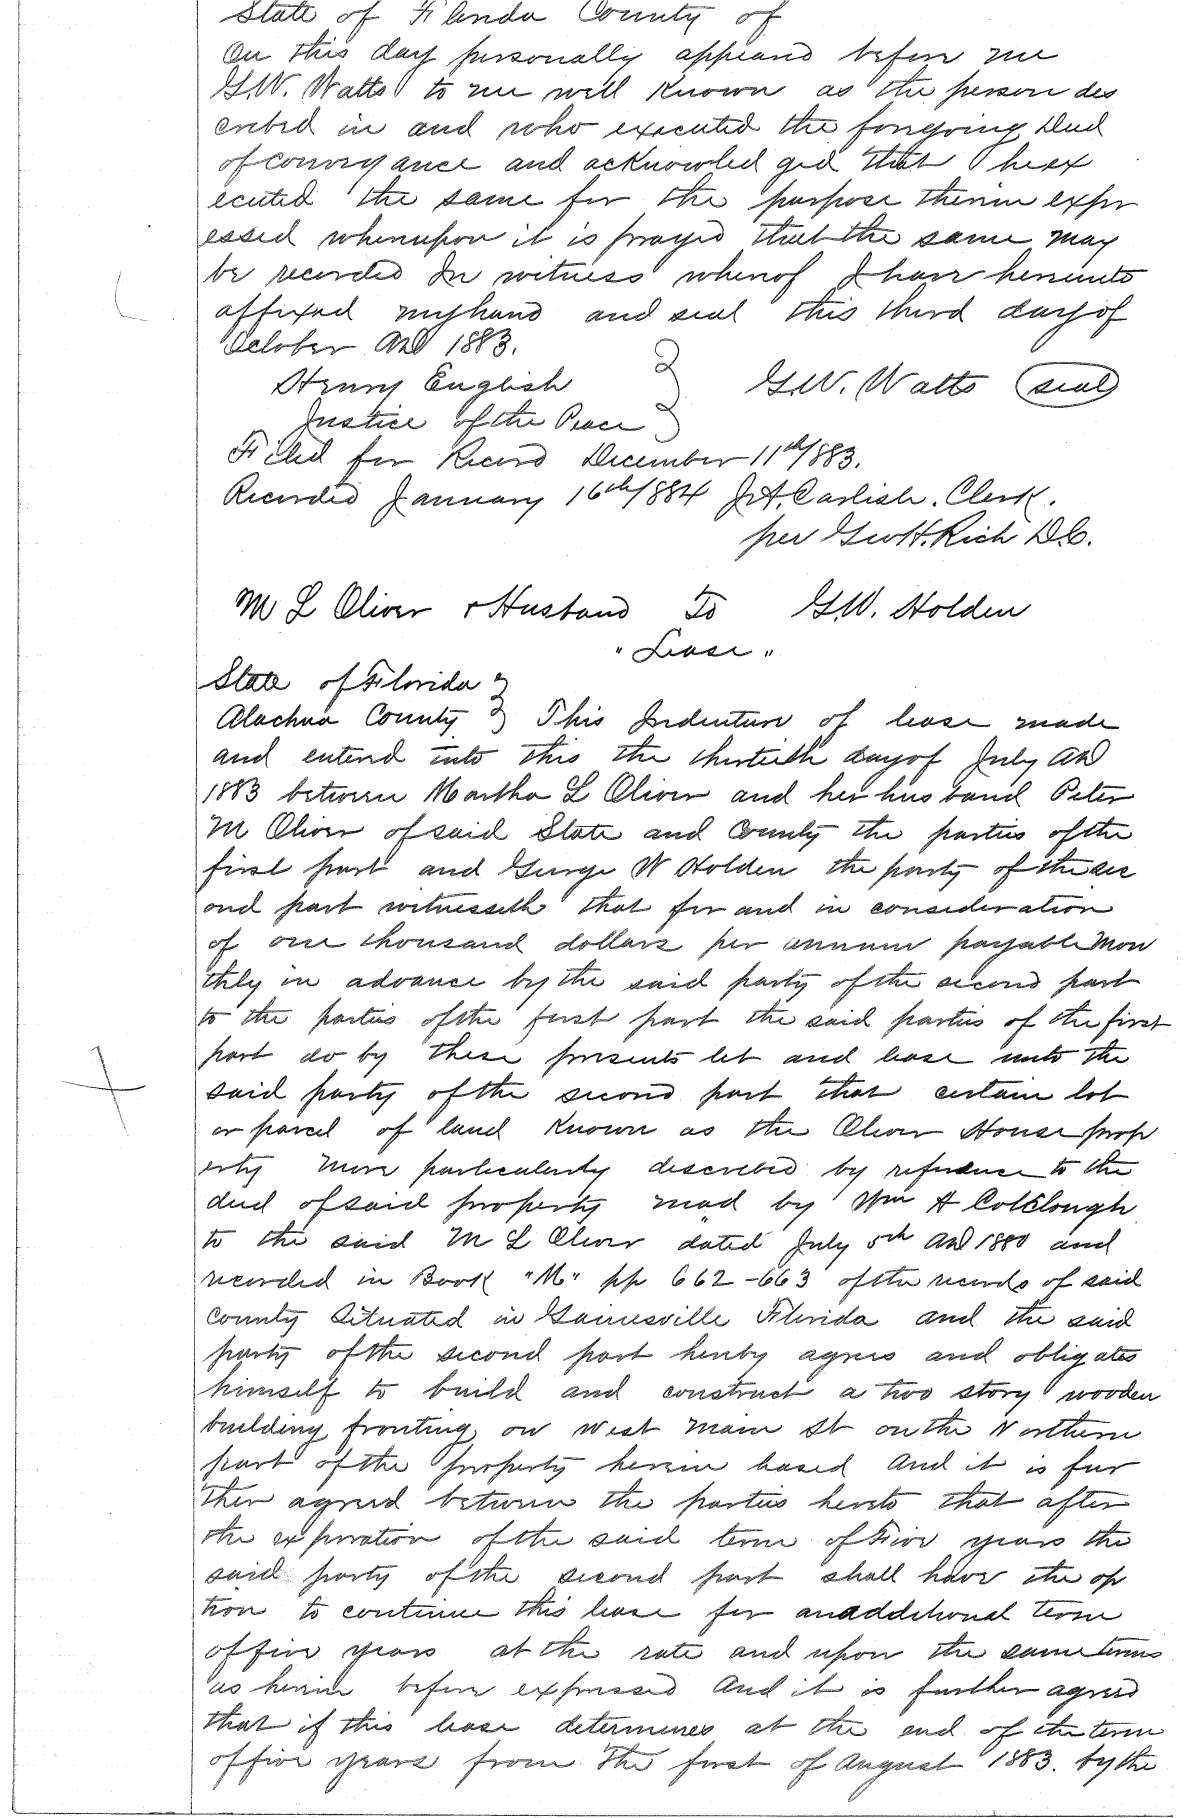 State of Florida County of
On this day personally appeared before me
G.W. Watts to me well Known as the person des
cribed in and who executed the foregoing Deed
of conveyance and acKnowledged that he ex
ecuted the same for the purpose therein expr
essed whereupon it is prayed that the same may
be recorded In witness whereof I have hereunto
affixed my hand and seal this third day of
October AD 1883.
Henry English } G.W. Watts (seal)
Justice of the Peace }
Filed for Record December 11th/1883.
Recorded January 16th/1884 J.A. Carlisle. Clerk.
per Geo H. Rich D.C.
M L Oliver & Husband To G.W. Holden
"Lease"
State of Florida }
Alachua County } This Indenture of lease made
and entered into this the thirtieth day of July AD
1883 between Martha L Oliver and her husband Peter
M Oliver of said State and County the parties of the
first part and George W Holden the party of the sec
ond part witnesseth that for and in consideration
of one thousand dollars per annum payable Mon
thly in advance by the said party of the second part
to the parties of the first part the said parties of the first
part do by these presents let and lease unto the
said party of the second part that certain lot
or parcel of land Known as the Oliver House prop
erty more particularly described by reference to the
deed of said property made by Wm A Colclough
to the said M L Oliver dated July 5th AD 1880 and
recorded in Book "M" pp 662-663 of the records of said
County Situated in Gainesville Florida and the said
party of the second part hereby agrees and obligates
himself to build and construct a two story wooden
building fronting on West Main St on the Northern
part of the property herein leased And it is fur
ther agreed between the parties hereto that after
the expiration of the said term of Five years the
said party of the second part shall have the op
tion to continue this lease for an additional term
of five years at the rate and upon the same terms
as herein before expressed And it is further agreed
that if this lease determines at the end of the term
of five years from the first of August 1883. by the